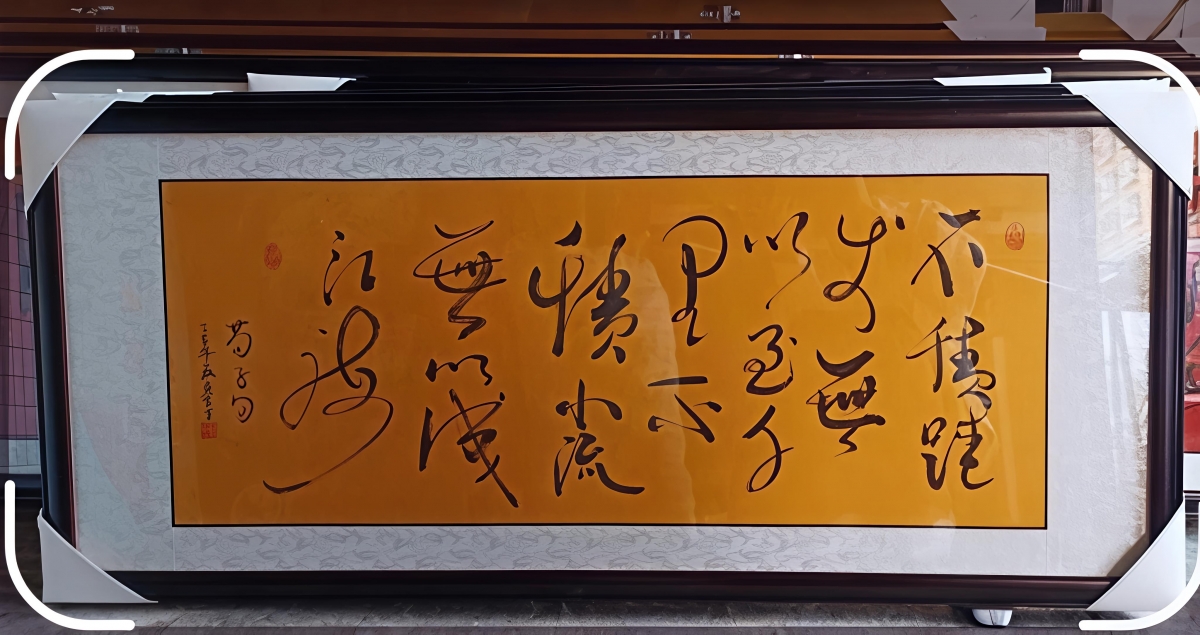 不積跬
步無
以至千
里不
積小流
無以成
江海
荀子句